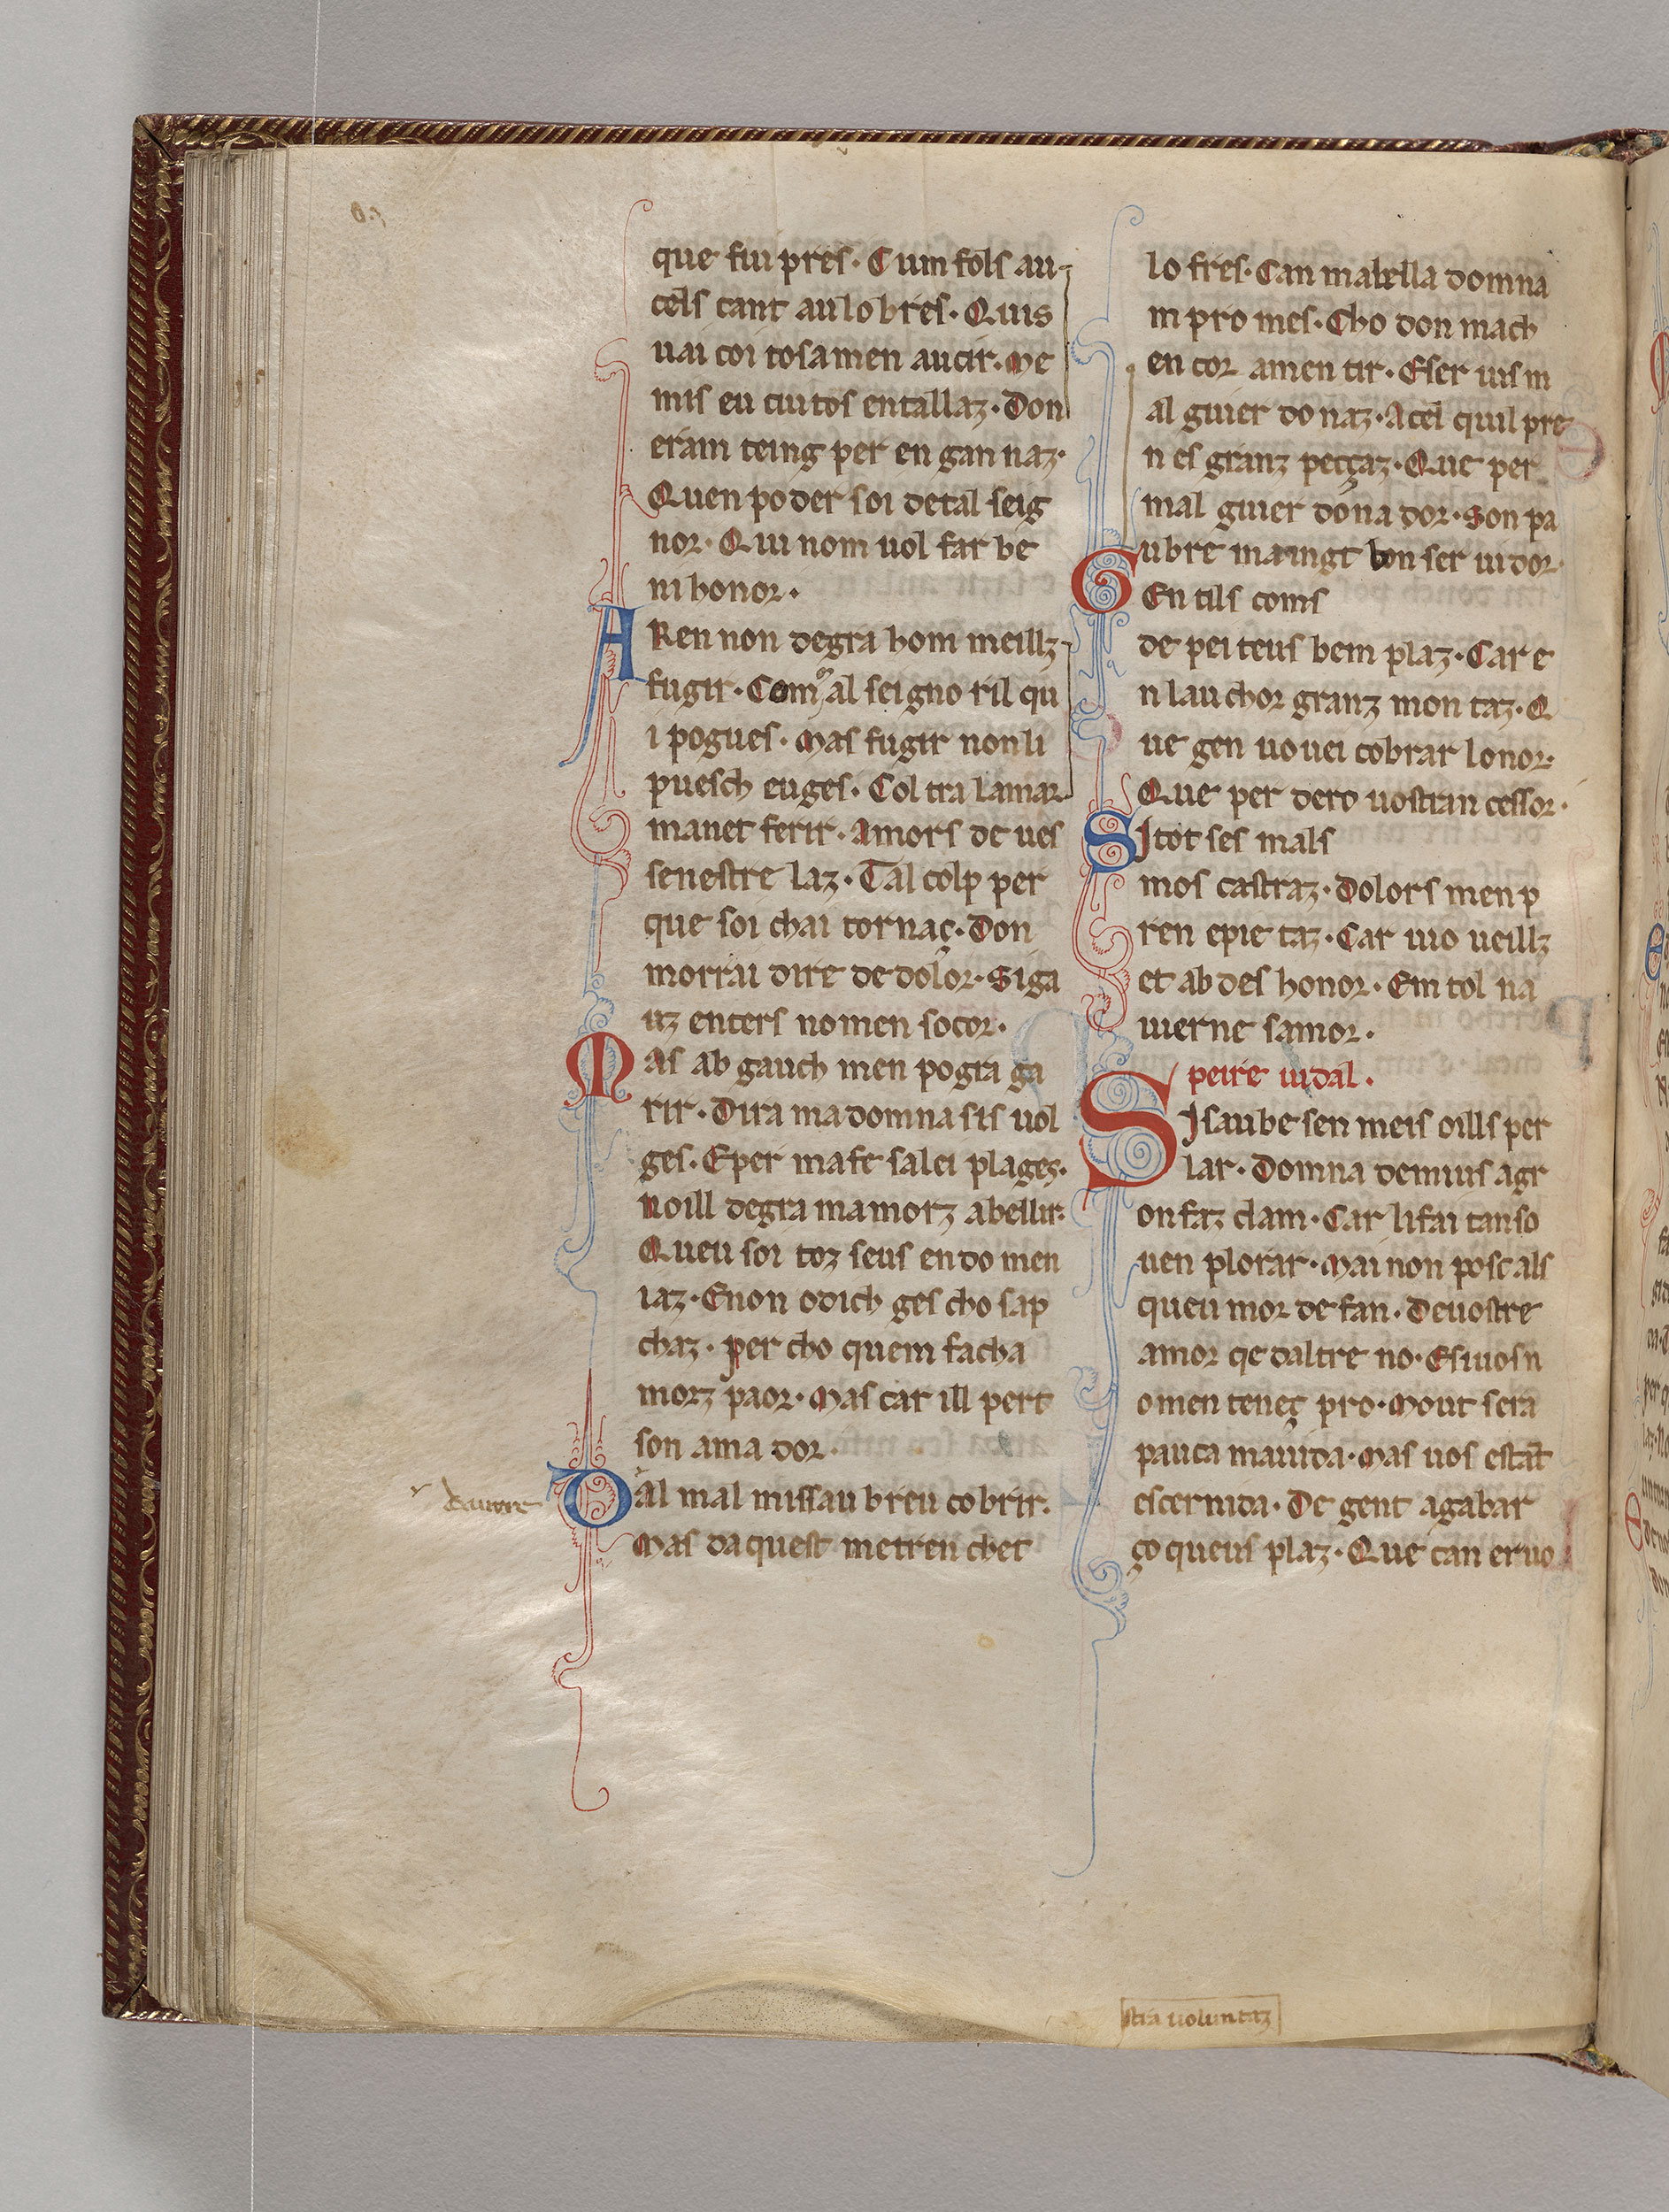 que fui pres. Cum fols au-
cels cant au lo bres. Quis
uai coi tosamen aucir. Me
mis eu tiu tos entallaz. Don
eram teing per en gan naz.
Quen poder soi detal seig
nor. Qui nom uol far be
ni honor.
ARen non degra hom meillz
fugir. Com al seigno ril qu
i pogues. Mas fugir non li
puesch euges. Col tra lamar
manet ferir. Amors de ues
senestre laz. Tal colp per
que soi chai tornaç. Don
morrai dire de dolor. Siga
uz enters no men socor.
Mas ab gauch men pogra ga
rir. Dira ma domna sis uol
ges. E per ma fe salei plages.
Noill degra ma morz abellir.
Queu soi toz seus en do men
iaz. E non o dich ges cho sap
chaz. Per cho quem facha
morz paor. Mas car ill pert
son ama dor.
Dal mal missau breu cobrir.
Mas da quest metren chet
lo fres. Can ma bella domna
m pro mes. Cho don mach
en cor amen tir. E ser uis m
al guier do naz. A cel quil pre
n es granz peççaz. Que per
mal guier dona dor. Son pa
ubre maingt bon ser uidor.
GEn tils coms
de pei teus bem plaz. Car e
n lau chor granz mon taz. Q
ue gen uo uei cobrar lonor.
Que per dero uostran cessor.
SI tot ses mals
mos castraz. Dolors men p
ren epie taz. Car uio ueillz
et ab des honor. Em tol na
uierne samor.
peire uidal.
SIsaube sen meis oills per
lar. Domna demius agr
on faz clam. Car li fai tan so
uen plorar. Mai non posc als
queu mor de fan. De uostre
amor qe daltre no. E si uos n
o men teneç pro. Mout sera
pauca mauida. Mas uos estat
escernida. De gent agabar
ço queus plaz. Que can er uo
stra uoluntaz